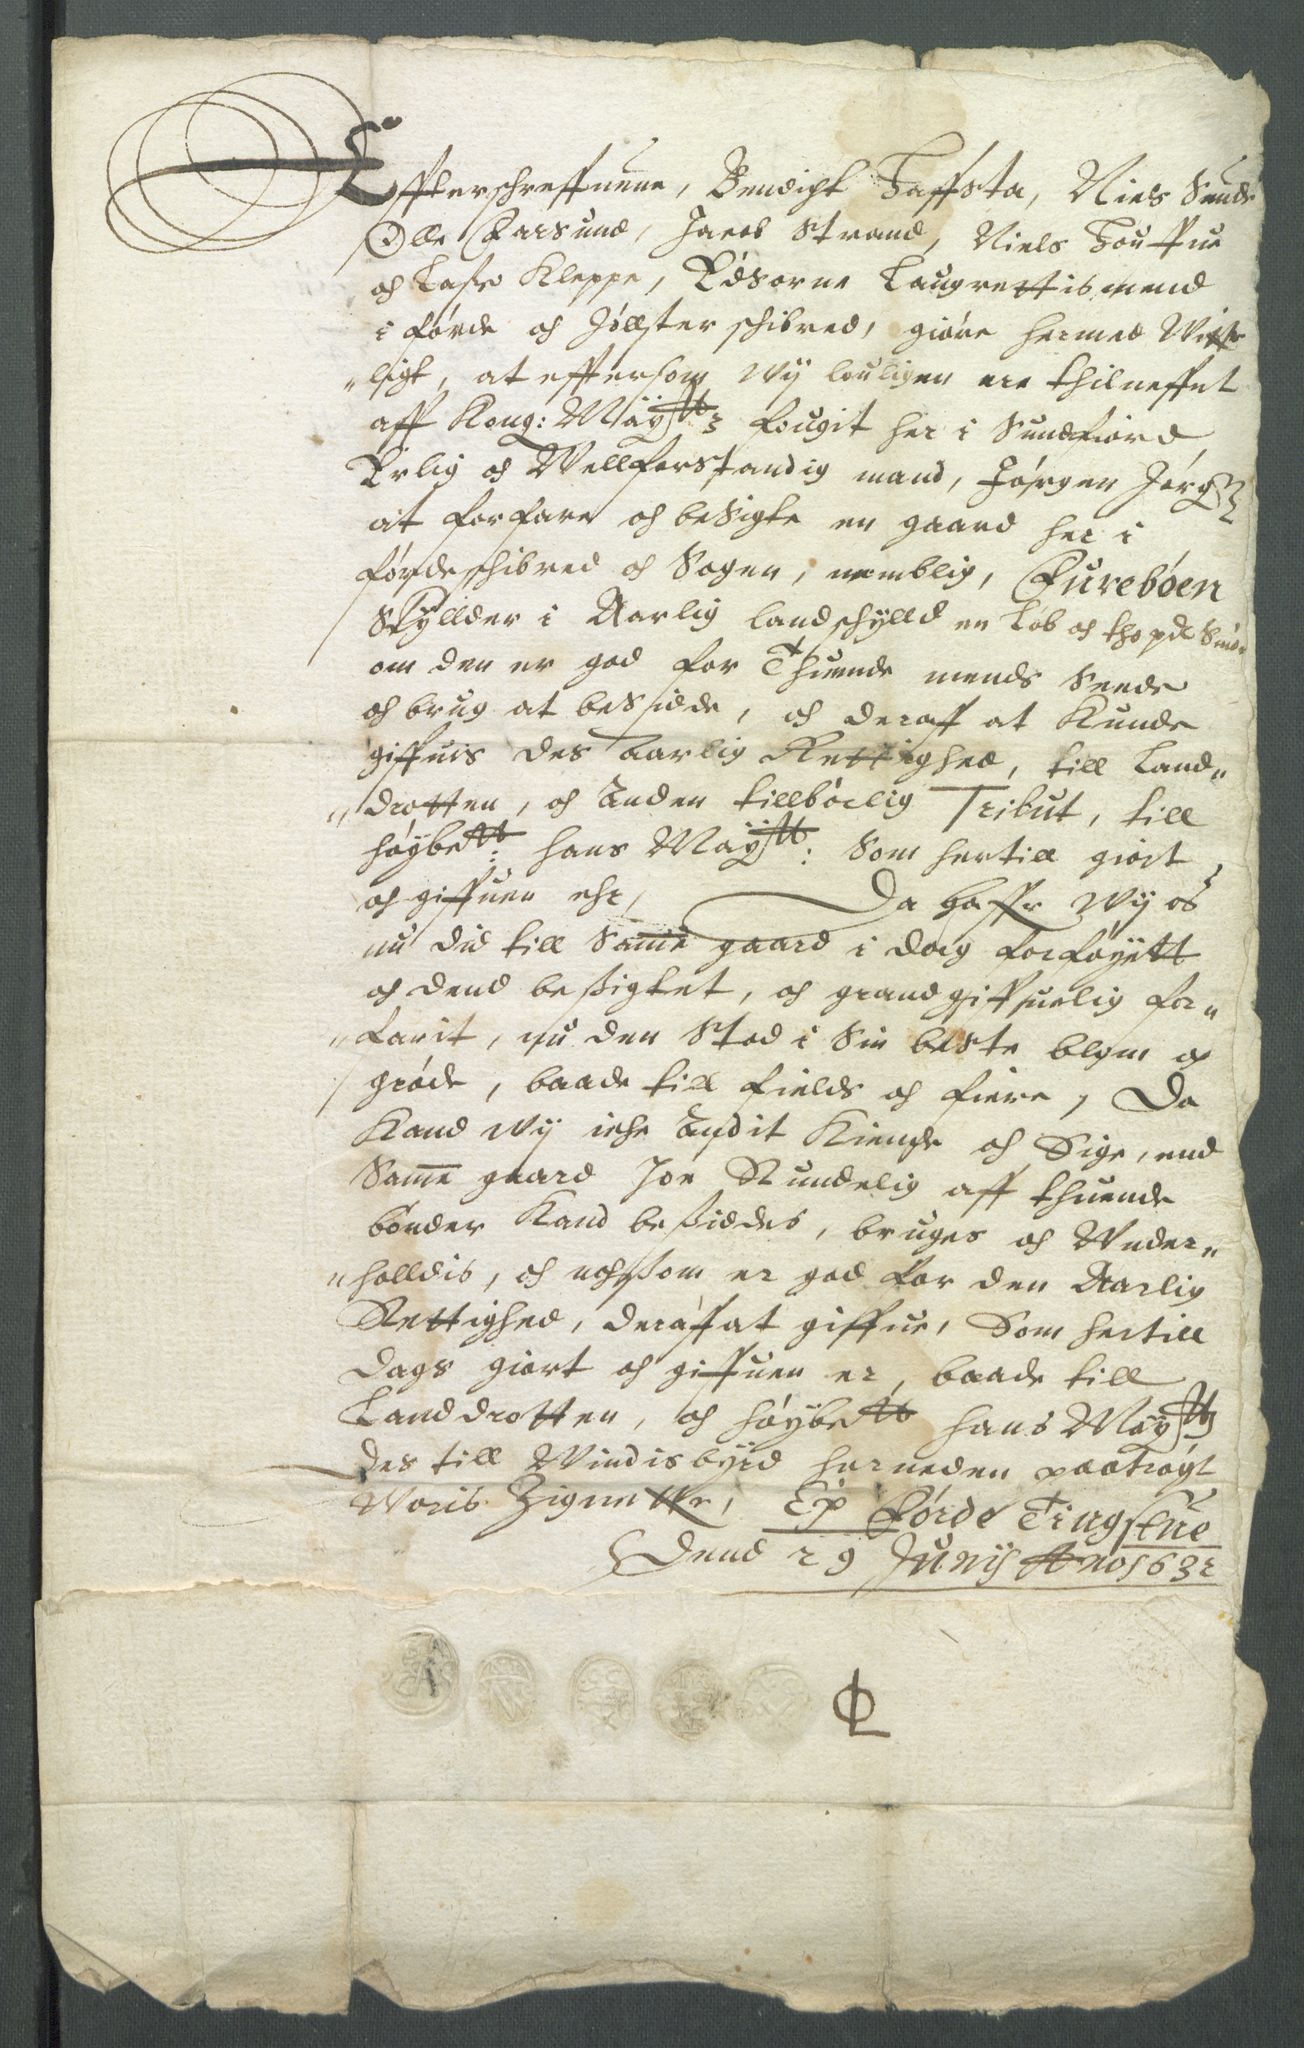 Effterschreffuene, Bendigt Haffsta, Niels Sunde
Olle Farsund, Jacob Strand, Niels Houffue
och Lasse Kleppe, Edsorne Laugrettismend
i førde och Jølster schibred, giøre hermed Witter„
„ligt, at effersom wij louligen ere thilneffnt
aff Kong: Maÿtts fougit her i Sundfiord
Erlig och Wellforstandig mand, Jørgen
at forfare och besigte en gaard her i
førde schibred och Sogen, nemblig, Furebøen
Skÿllder i Aarlig landschÿlld en Løb och tho pd Smør
om den er god for Thuende mends Seede
och brug at besidde, och deraff at Kunde
giffuis des aarlig Rettighed, till Land„
„drotten, och anden tillbørlig Tribut, till
høÿbett: hans Maÿtt: Som hertill giort
och giffuen ehr, Da haffr Wij os
nu did till Samme gaard i dag forføÿett
och dend beßigtet, och grandgiffuelig for„
„farit, nu den Stod i Sin beste blom og
grøde, baade till fields och fiere, Da
Kand wij iche andit Kiende och Sige, end
Samme gaard Joe Skundelig aff thuende
bønder Kand beßiddes, bruges och Wnder„
„holldis, och nochsom er god for den Aarlig
Rettighed, deraf at giffue, Som hertill
dags giort och giffuen er, baade till
Landdrotten, och høÿbett hans Maÿtt
des till Windisbÿrd herneden paatrøgt
Woris Zignetter, Ep Førde Tingstue
Dend 29 Junij Ano 1632